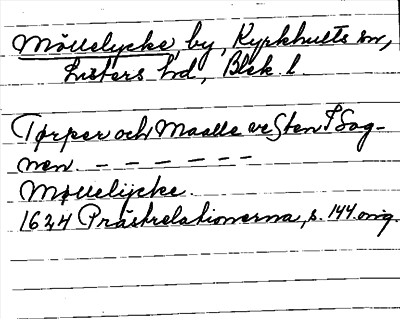 Möllelycke, by, Kyrkhults sn,
Listers hd, Blek. l.
Tørper och Maalle vesten I Sog-
nen. — — — — — —
Møllelijcke.
1624 Prästrelationerna, s. 144 orig.